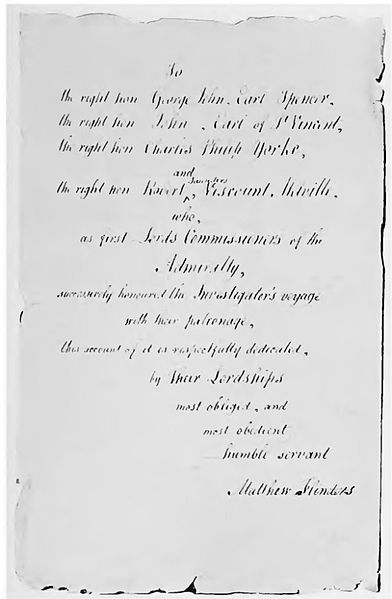 To
the right hon George John, Earl Spencer,
the right hon John, Earl of St Vincent,
the right hon Charles Philip Yorke,
and
the right hon Robert Saunders, Viscount Melville,
who,
as first Lords Commissioners of the
Admiralty,
successively honoured the Investigator's voyage
with their patronage,
this account of it is respectfully dedicated,
by Their Lordships
most obliged, and
most obedient
humble servant
Matthew Flinders